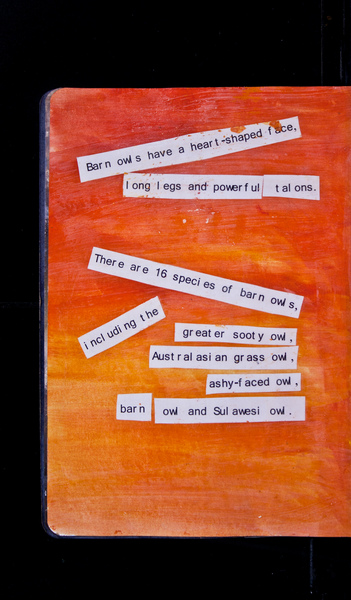 Barn owls have a heart-shaped face,
long legs and powerful talons.
There are 16 species of barn owls,
including the
greater sooty owl,
Australasian grass owl,
ashy-faced owl,
barn owl and Sulawesi owl.